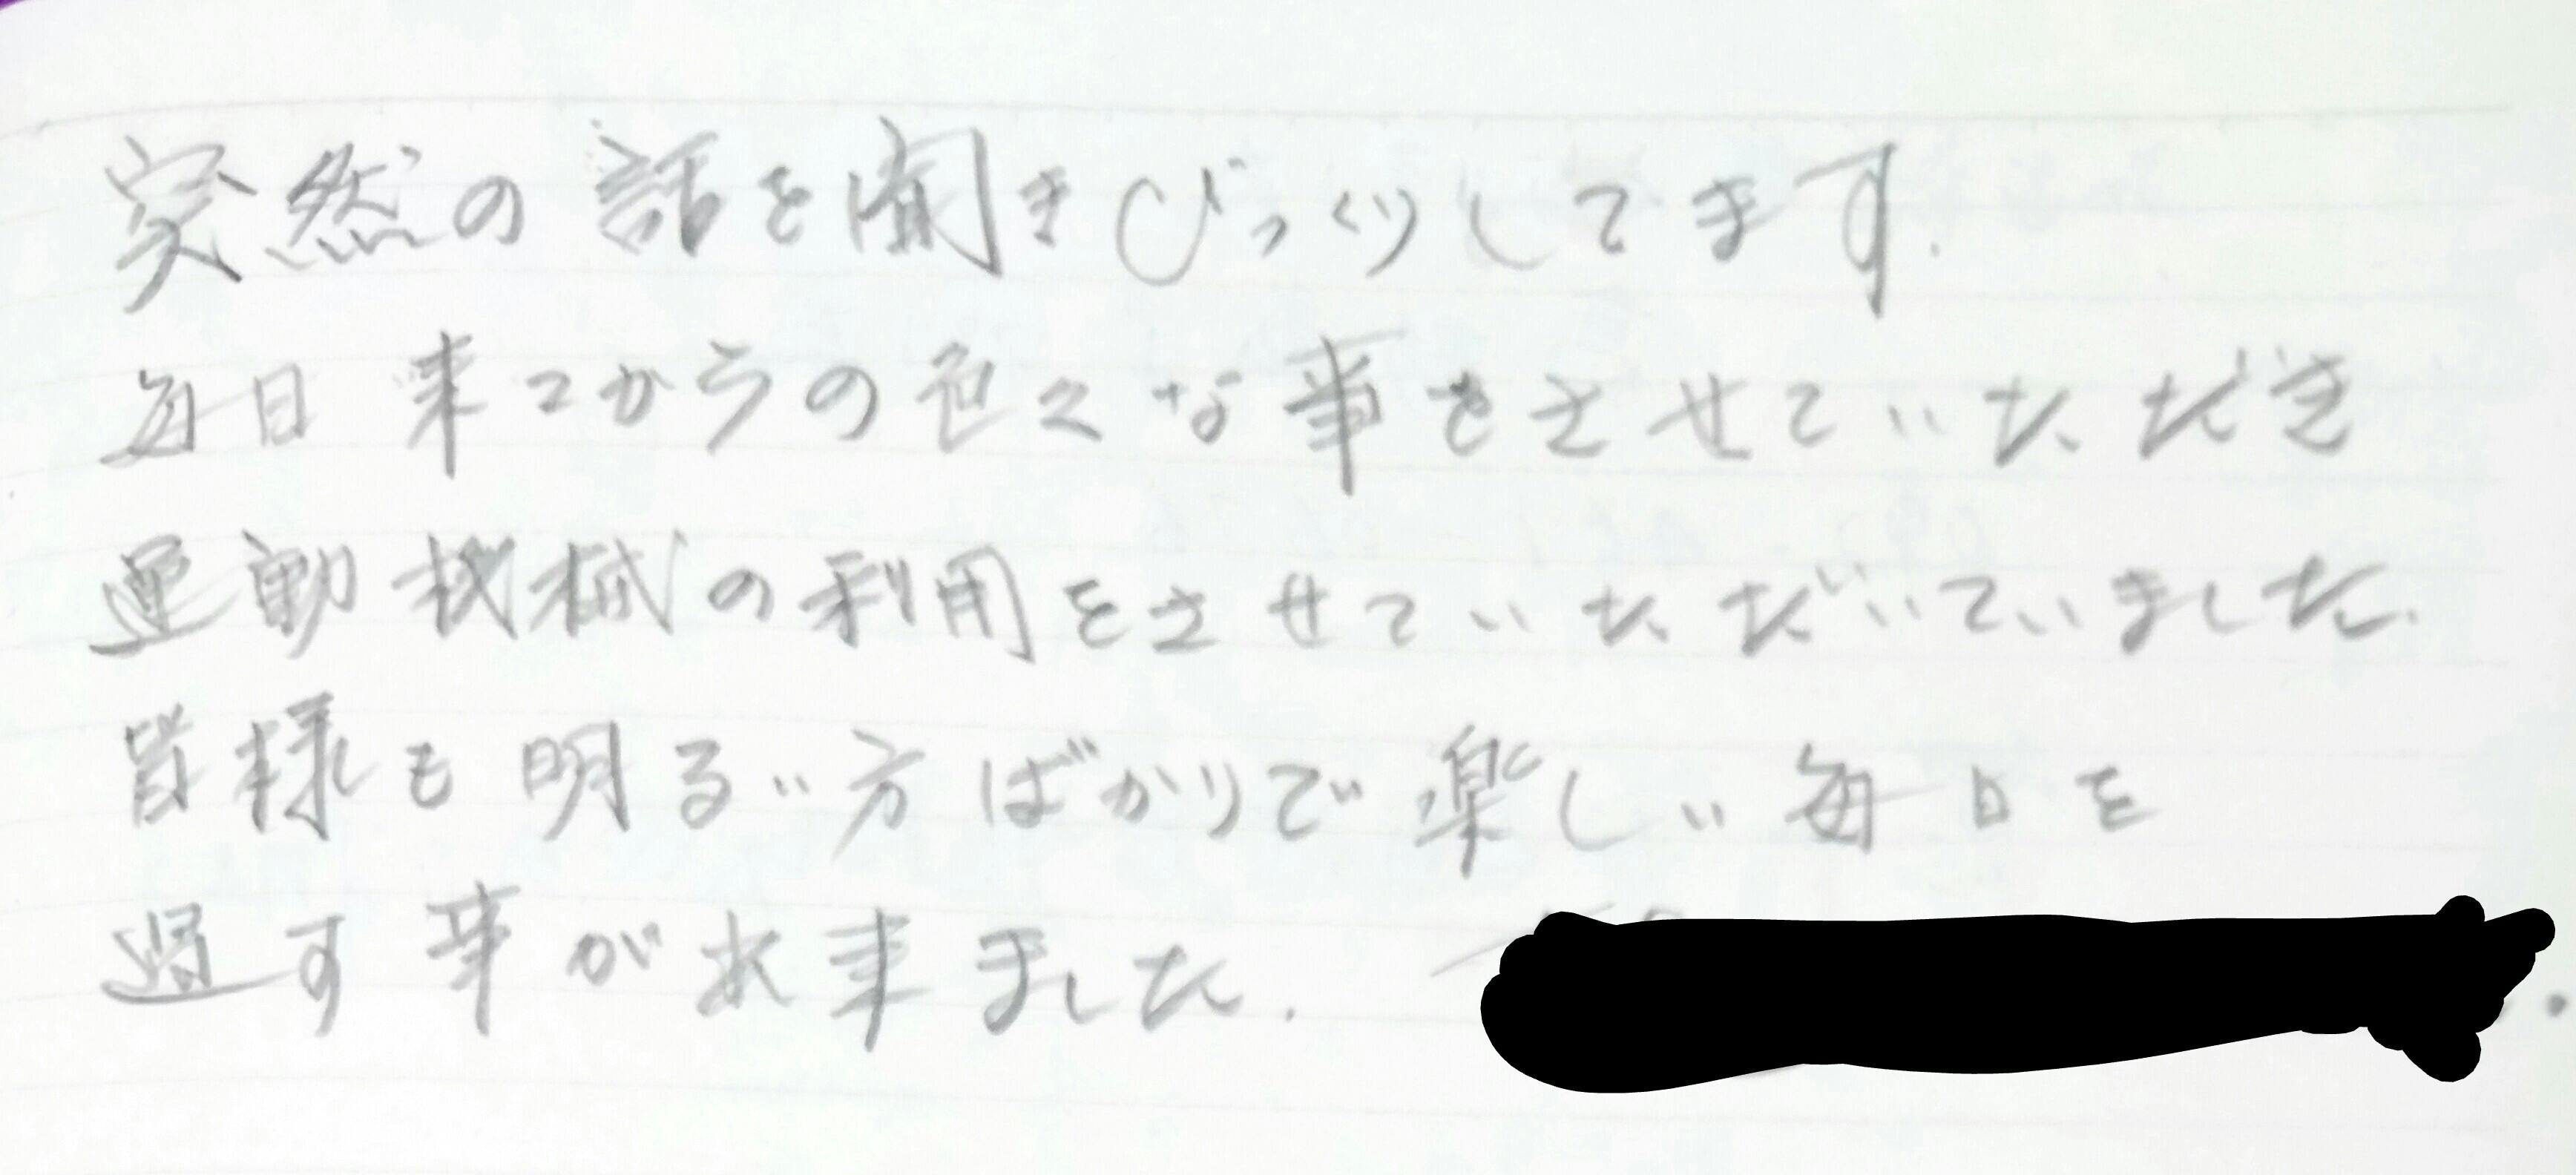 突然の話を聞きびっくりしてます.
毎日来てからの色々な事をさせていただき
運動機械の利用をさせていただいていました.
皆様も明るい方ばかりで楽しい毎日を
過す事が出来ました.